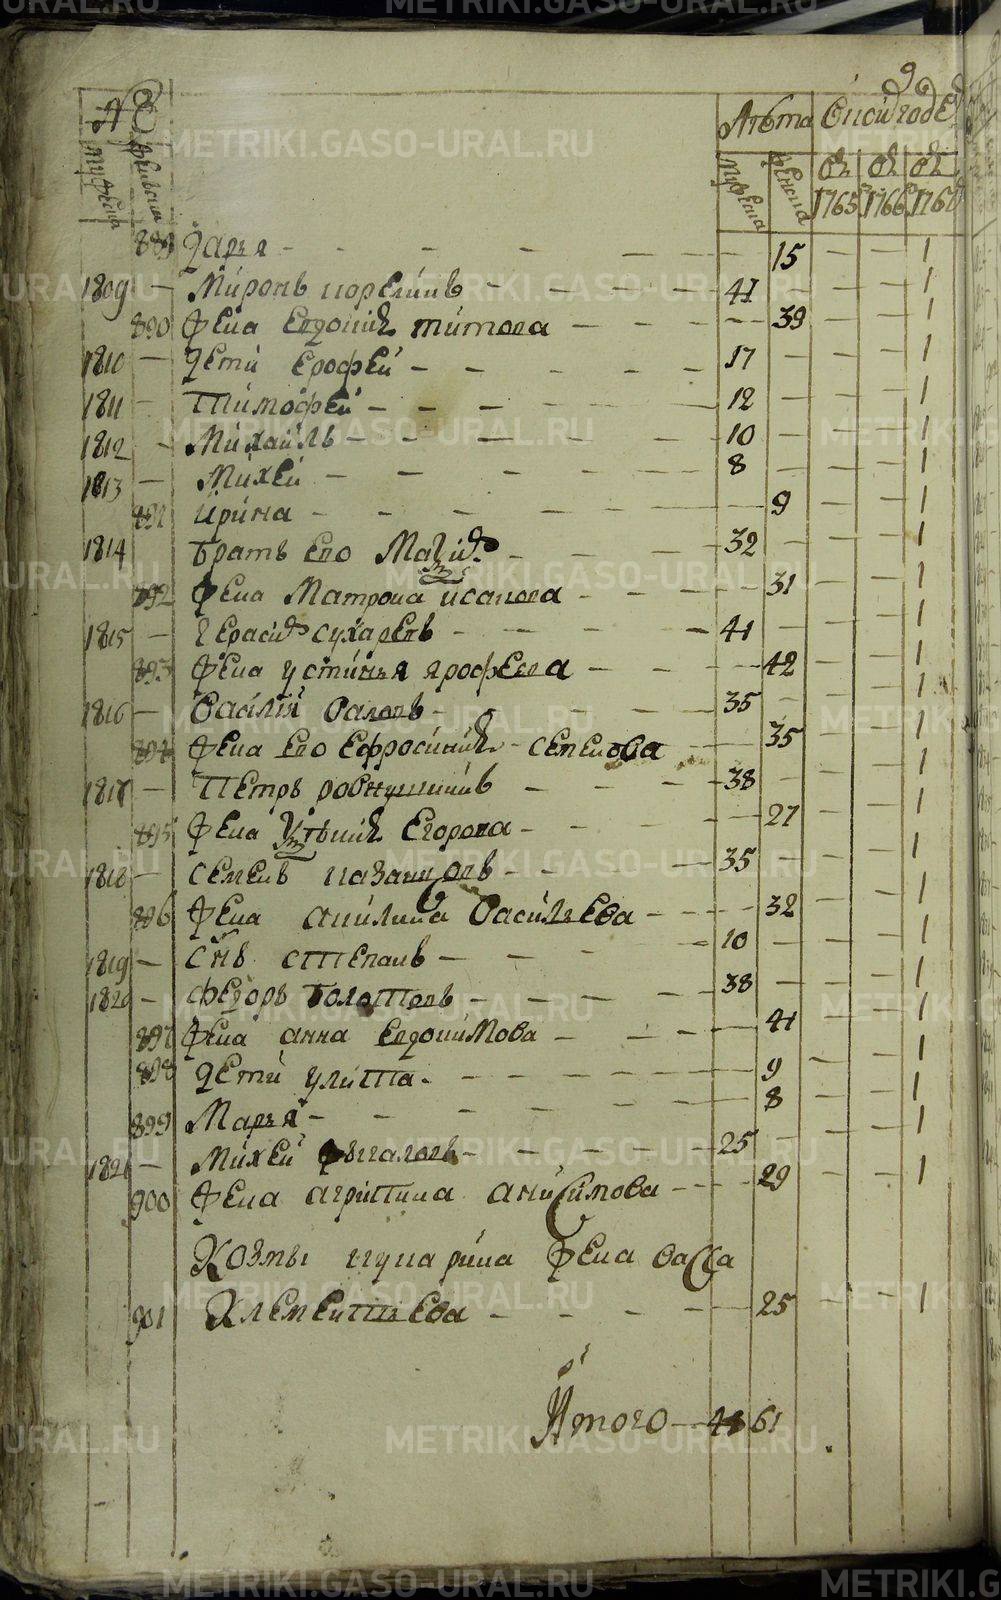 9
№
Лѣта
мужеска
женска
мужеска
женска
1765
1766
176
889 Дарья 15 1
1809 Миронъ 41 1
890 жена Евдокия Титова 39 1
1810 дети Ерофей 17 1
1811 Тимофей 12 1
1812 Михаилъ 10 1
1813 Михей 8 1
891 Ирина 9 1
1814 братъ Его 32 1
892 жена Матрона Исакова 31 1
1815 Герасимъ Сухаревъ 41 1
893 жена Устинья Ярофеева 42 1
1816 Василий 35 1
894 жена Его Ефросиния Семенова 35 1
1817 Петръ 38 1
895 жена Егорова 27 1
1818 Семенъ Казанцовъ 35 1
896 жена Акилина Васильева 32 1
1819 снъ Степанъ 10 1
1820 Федоръ Болотовъ 38 1
897 жена Анна Евдокимова 41 1
898 дети Улита 9 1
899 Марья 8 1
1821 Михей 25 1
900 жена Агрипина Анисимова 29 1
Козмы жена Васса
901 Клементьева 25 1
Итого 48 61
METRIKI.GASO-URAL.RU